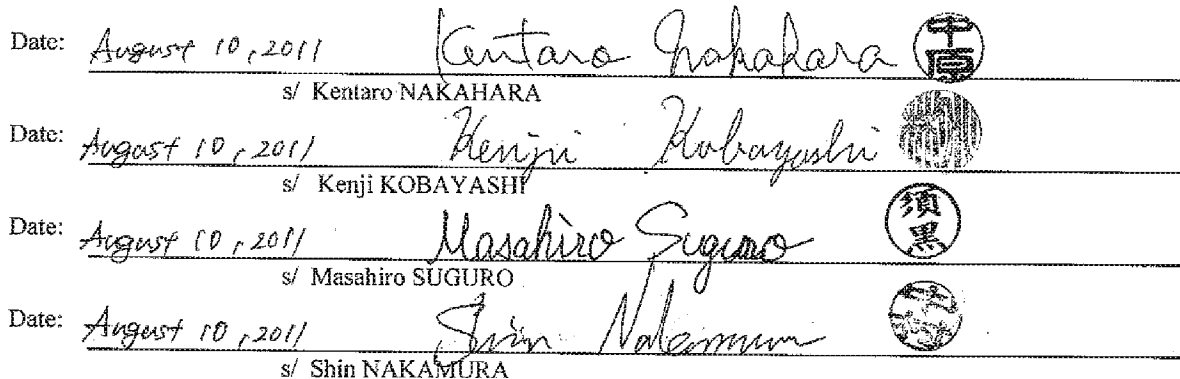 Date: August 10, 2011 Kentaro Nakahara 中原
s/ Kentaro NAKAHARA
Date: August 10, 2011 Kenji Kobayashi
s/ Kenji KOBAYASHI
Date: August 10, 2011 Masahiro Suguro 須黒
s/ Masahiro SUGURO
Date: August 10, 2011 Shin Nakamura
s/ Shin NAKAMURA